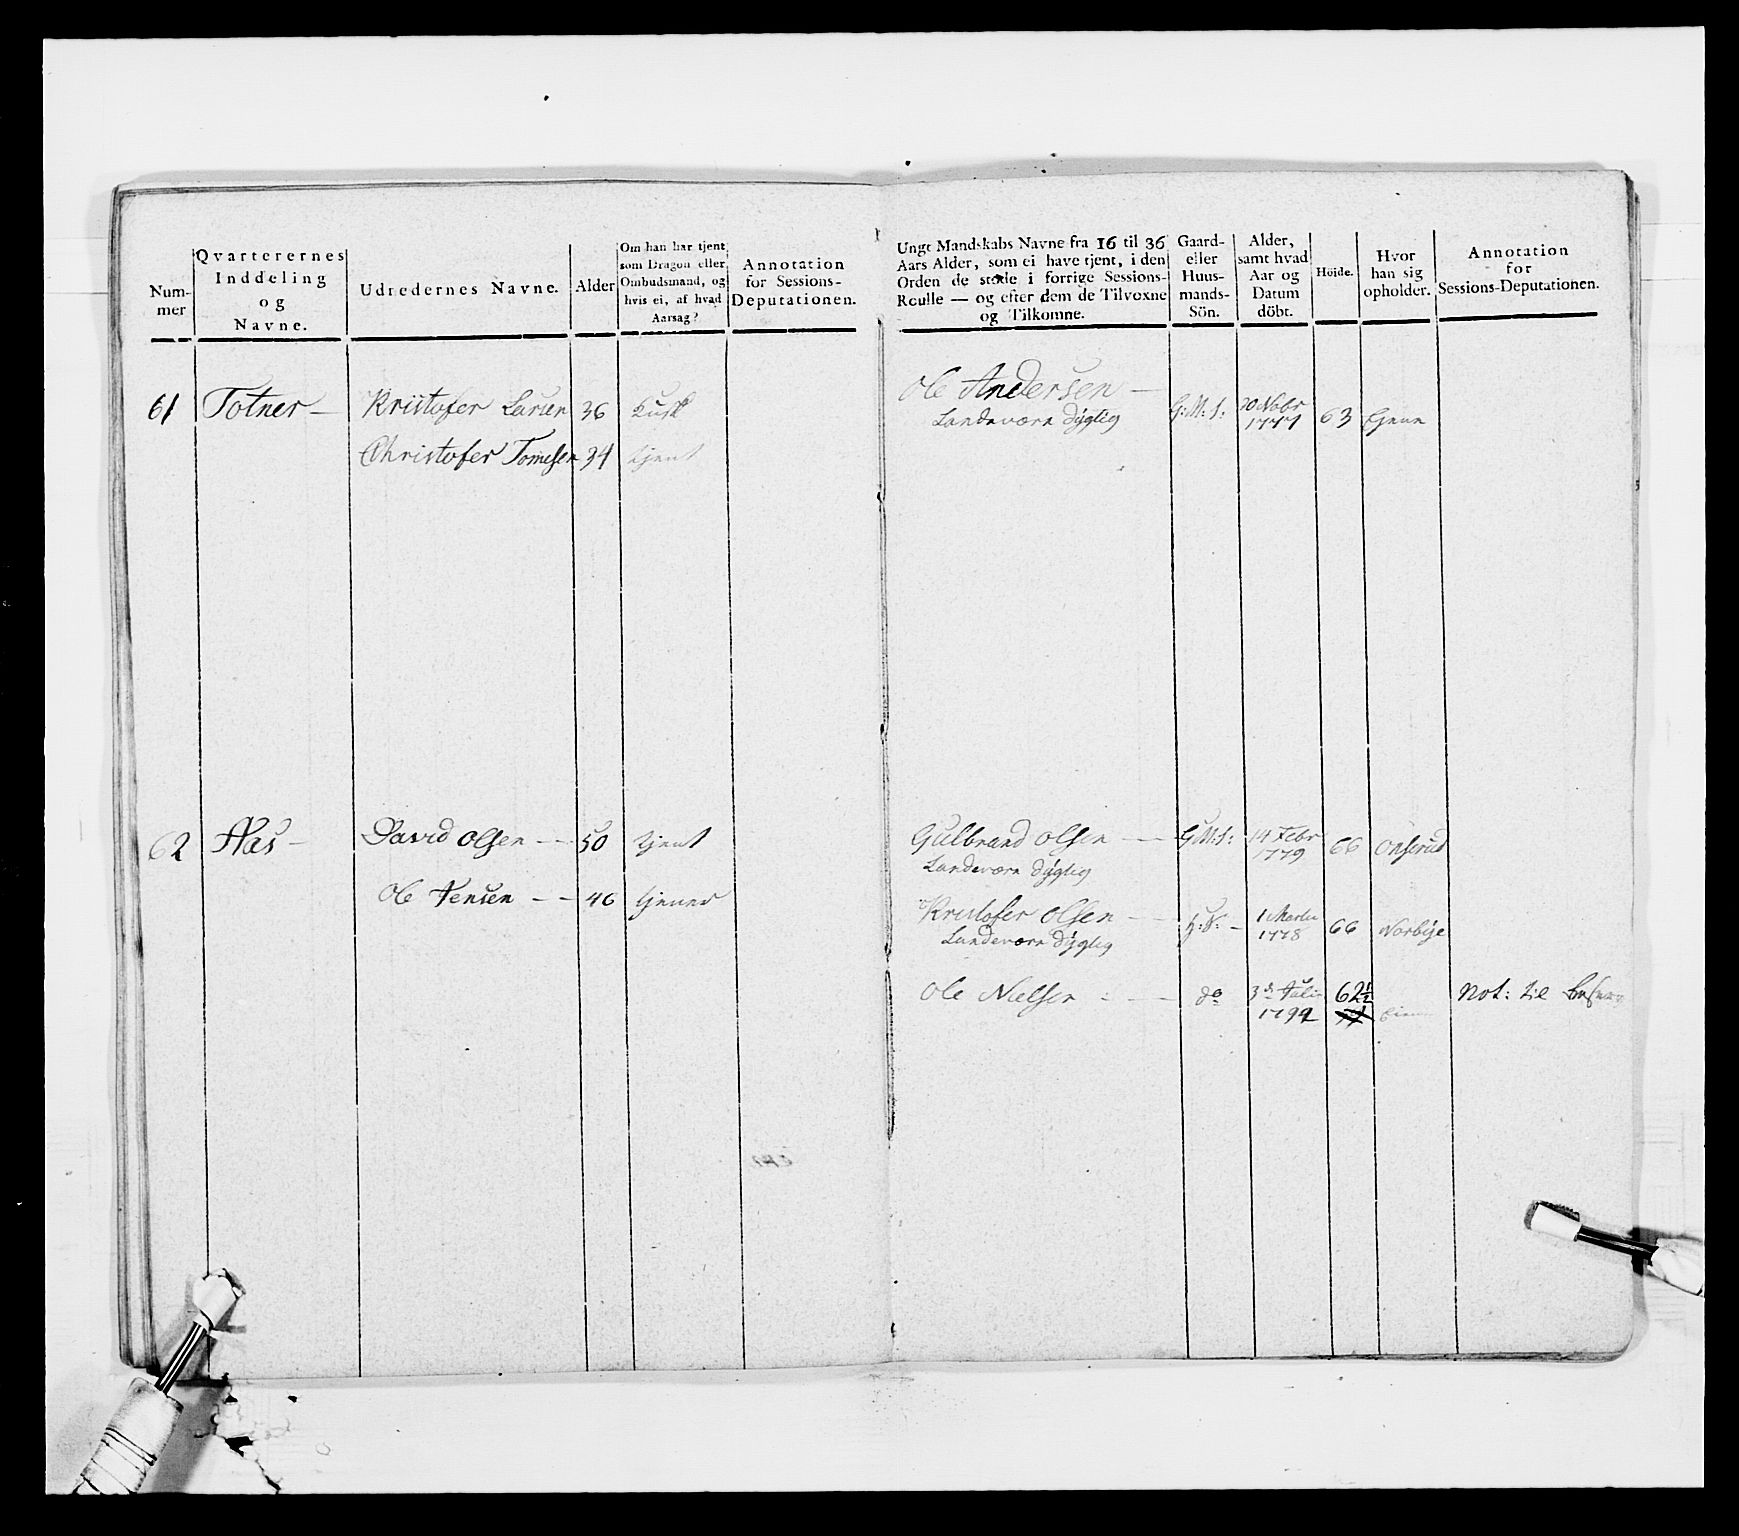 Num-
mer
Qvarterernes
Inddeling
og
Navne.
Udredernes Navne.
Alder
Om han har tjent
som Dragon eller
Ombudsmand, og
hvis ei, af hvad
Aarsag?
Annotation
for Sessions-
Deputationen.
Ungt Mandskabs Navne fra 16 til 36
Aars Alder, som ei have tjent, i den
Orden de stode i forrige Sessions-
Roulle — og efter dem de Tilvoxne
og Tilkomne.
Gaard-
eller
Huus-
mands-
Sön.
Alder,
samt hvad
Aar og
Datum
döbt.
Höjde.
Hvor
han sig
opholder.
Annotation
for
Sessions-Deputationen.
61 Totner — Kristofer Larsen 36 Kusk
Christofer Tomesen 34 tjent
Ole Andersen — G:M:S: 20 Nobr 63 Hjeme
Landeværn Dygtig 1777
62 Aas — David Olsen — 50 tjent
Ole Jensen — 46 tjener
Gulbrand Olsen — G:M:S: 14 Febr 66 Onserud
Landeværn Dygtig 1779
Kristofer Olsen — H:S: — 1 Martii 66 Norbye
Landeværn Dygtig 1778
Ole Nielsen — do 3de Julii 62½ Not: til
179